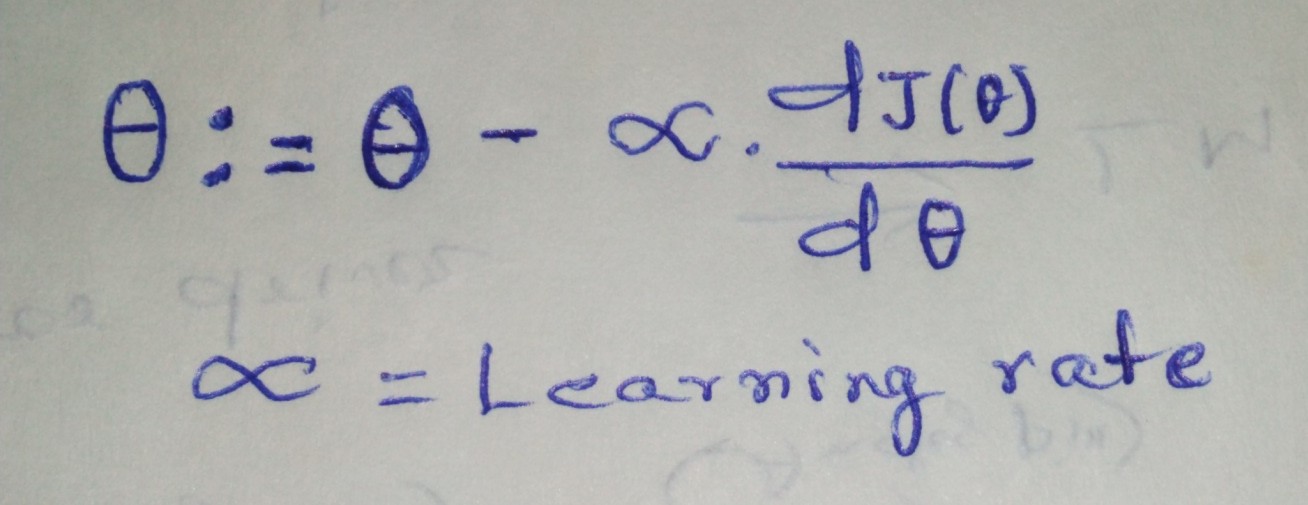 θ := θ - α . dJ(θ) / dθ
α = Learning rate